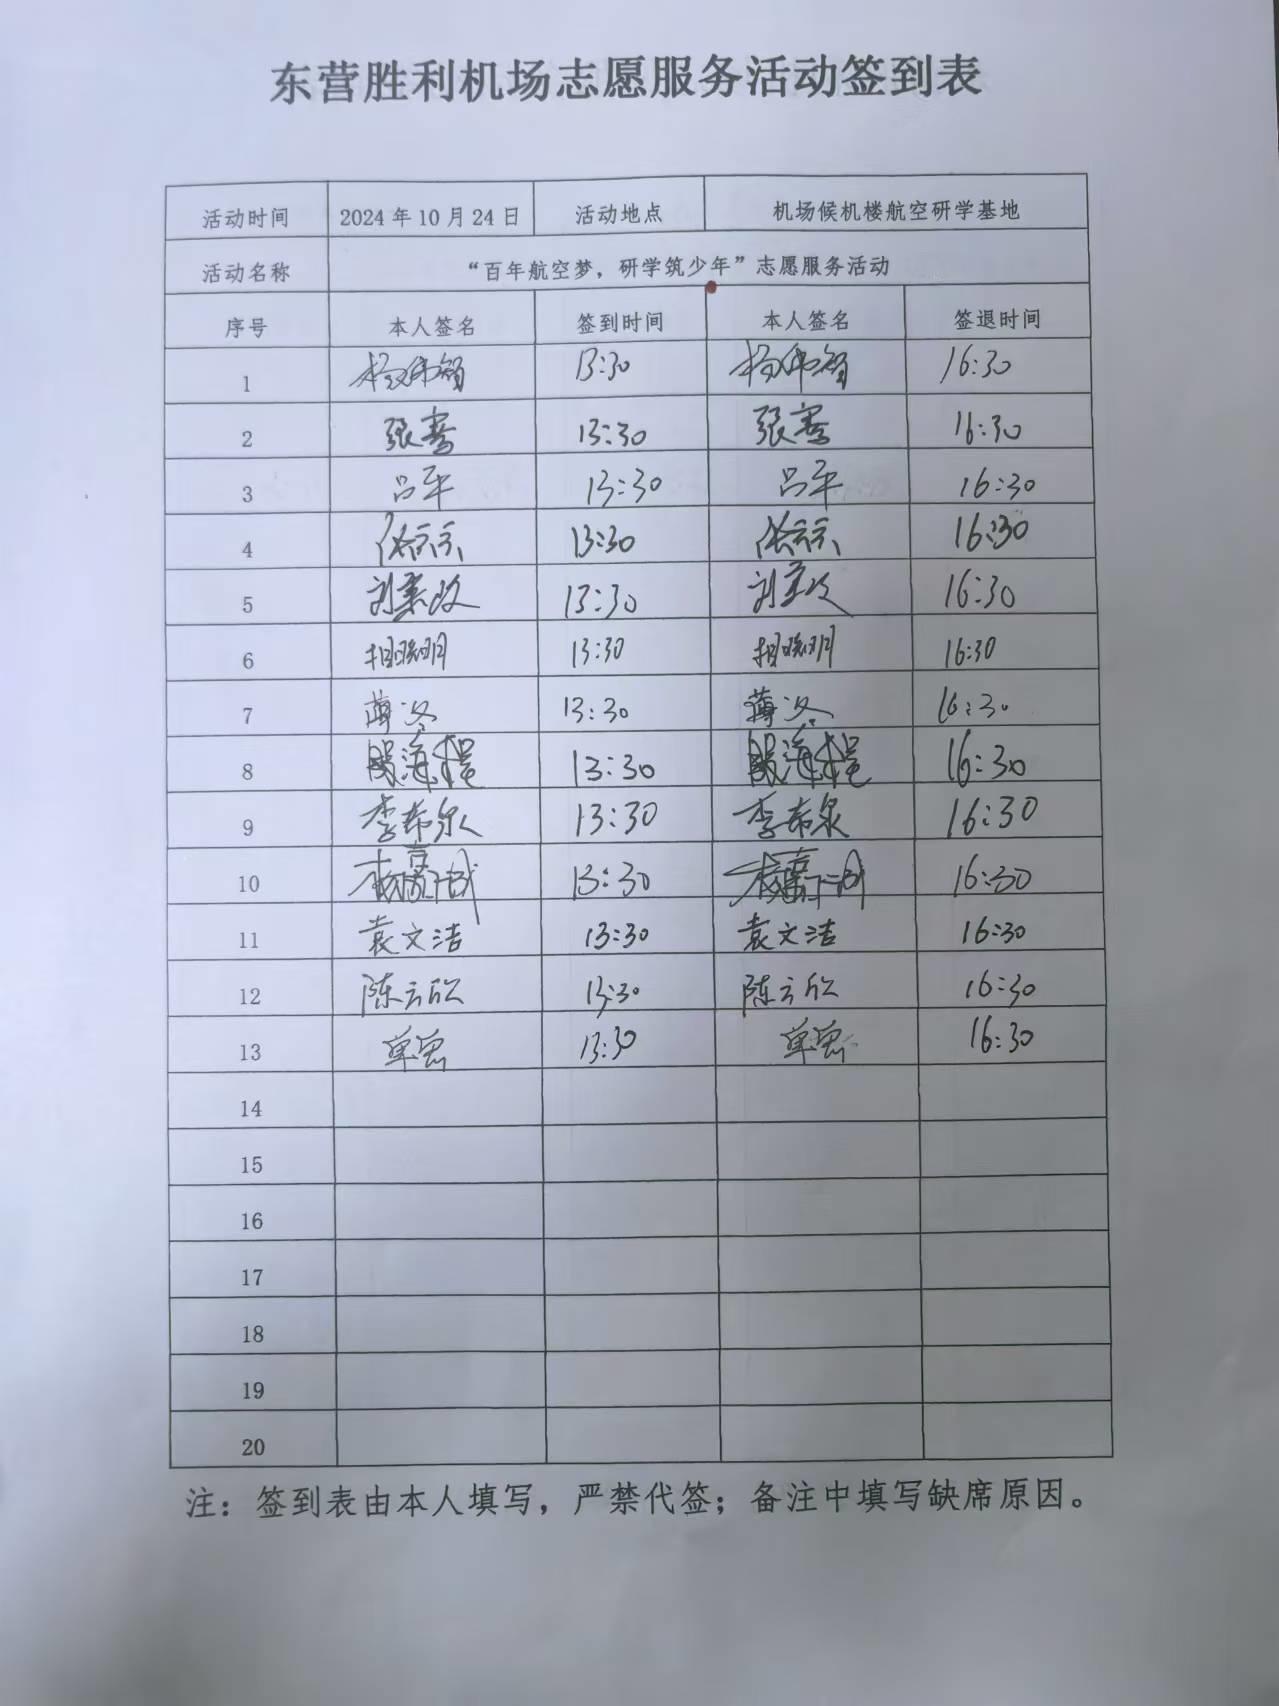 东营胜利机场志愿服务活动签到表
活动时间 2024年10月24日 活动地点 机场候机楼航空研学基地
活动名称 “百年航空梦，研学筑少年”志愿服务活动
序号 本人签名 签到时间 本人签名 签退时间
1 杨伟智 13:30 杨伟智 16:30
2 张骞 13:30 张骞 16:30
3 吕平 13:30 吕平 16:30
4 13:30 16:30
5 13:30 16:30
6 相晓明 13:30 相晓明 16:30
7 薄冰 13:30 薄冰 16:30
8 13:30 16:30
9 李希泉 13:30 李希泉 16:30
10 13:30 16:30
11 袁文洁 13:30 袁文洁 16:30
12 陈云欣 13:30 陈云欣 16:30
13 13:30 16:30
14
15
16
17
18
19
20
注：签到表由本人填写，严禁代签；备注中填写缺席原因。